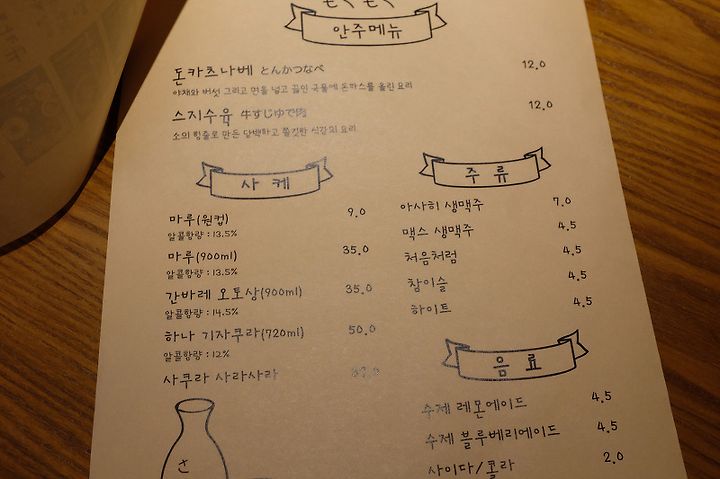 안주메뉴
돈카츠나베 とんかつなべ 12.0
야채와 버섯 그리고 면을 넣고 끓인 국물에 돈까스를 올린 요리
스지수육 牛すじゆで肉 12.0
소의 힘줄로 만든 담백하고 쫄깃한 식감의 요리
사케
마루(원컵) 9.0
알콜함량 : 13.5%
마루(900ml) 35.0
알콜함량 : 13.5%
간바레 오토상(900ml) 35.0
알콜함량 : 14.5%
하나 기자쿠라(720ml) 50.0
알콜함량 : 12%
사쿠라 사라사라
さ
주류
아사히 생맥주 7.0
맥스 생맥주 4.5
처음처럼 4.5
참이슬 4.5
하이트 4.5
음료
수제 레몬에이드 4.5
수제 블루베리에이드 4.5
사이다/콜라 2.0